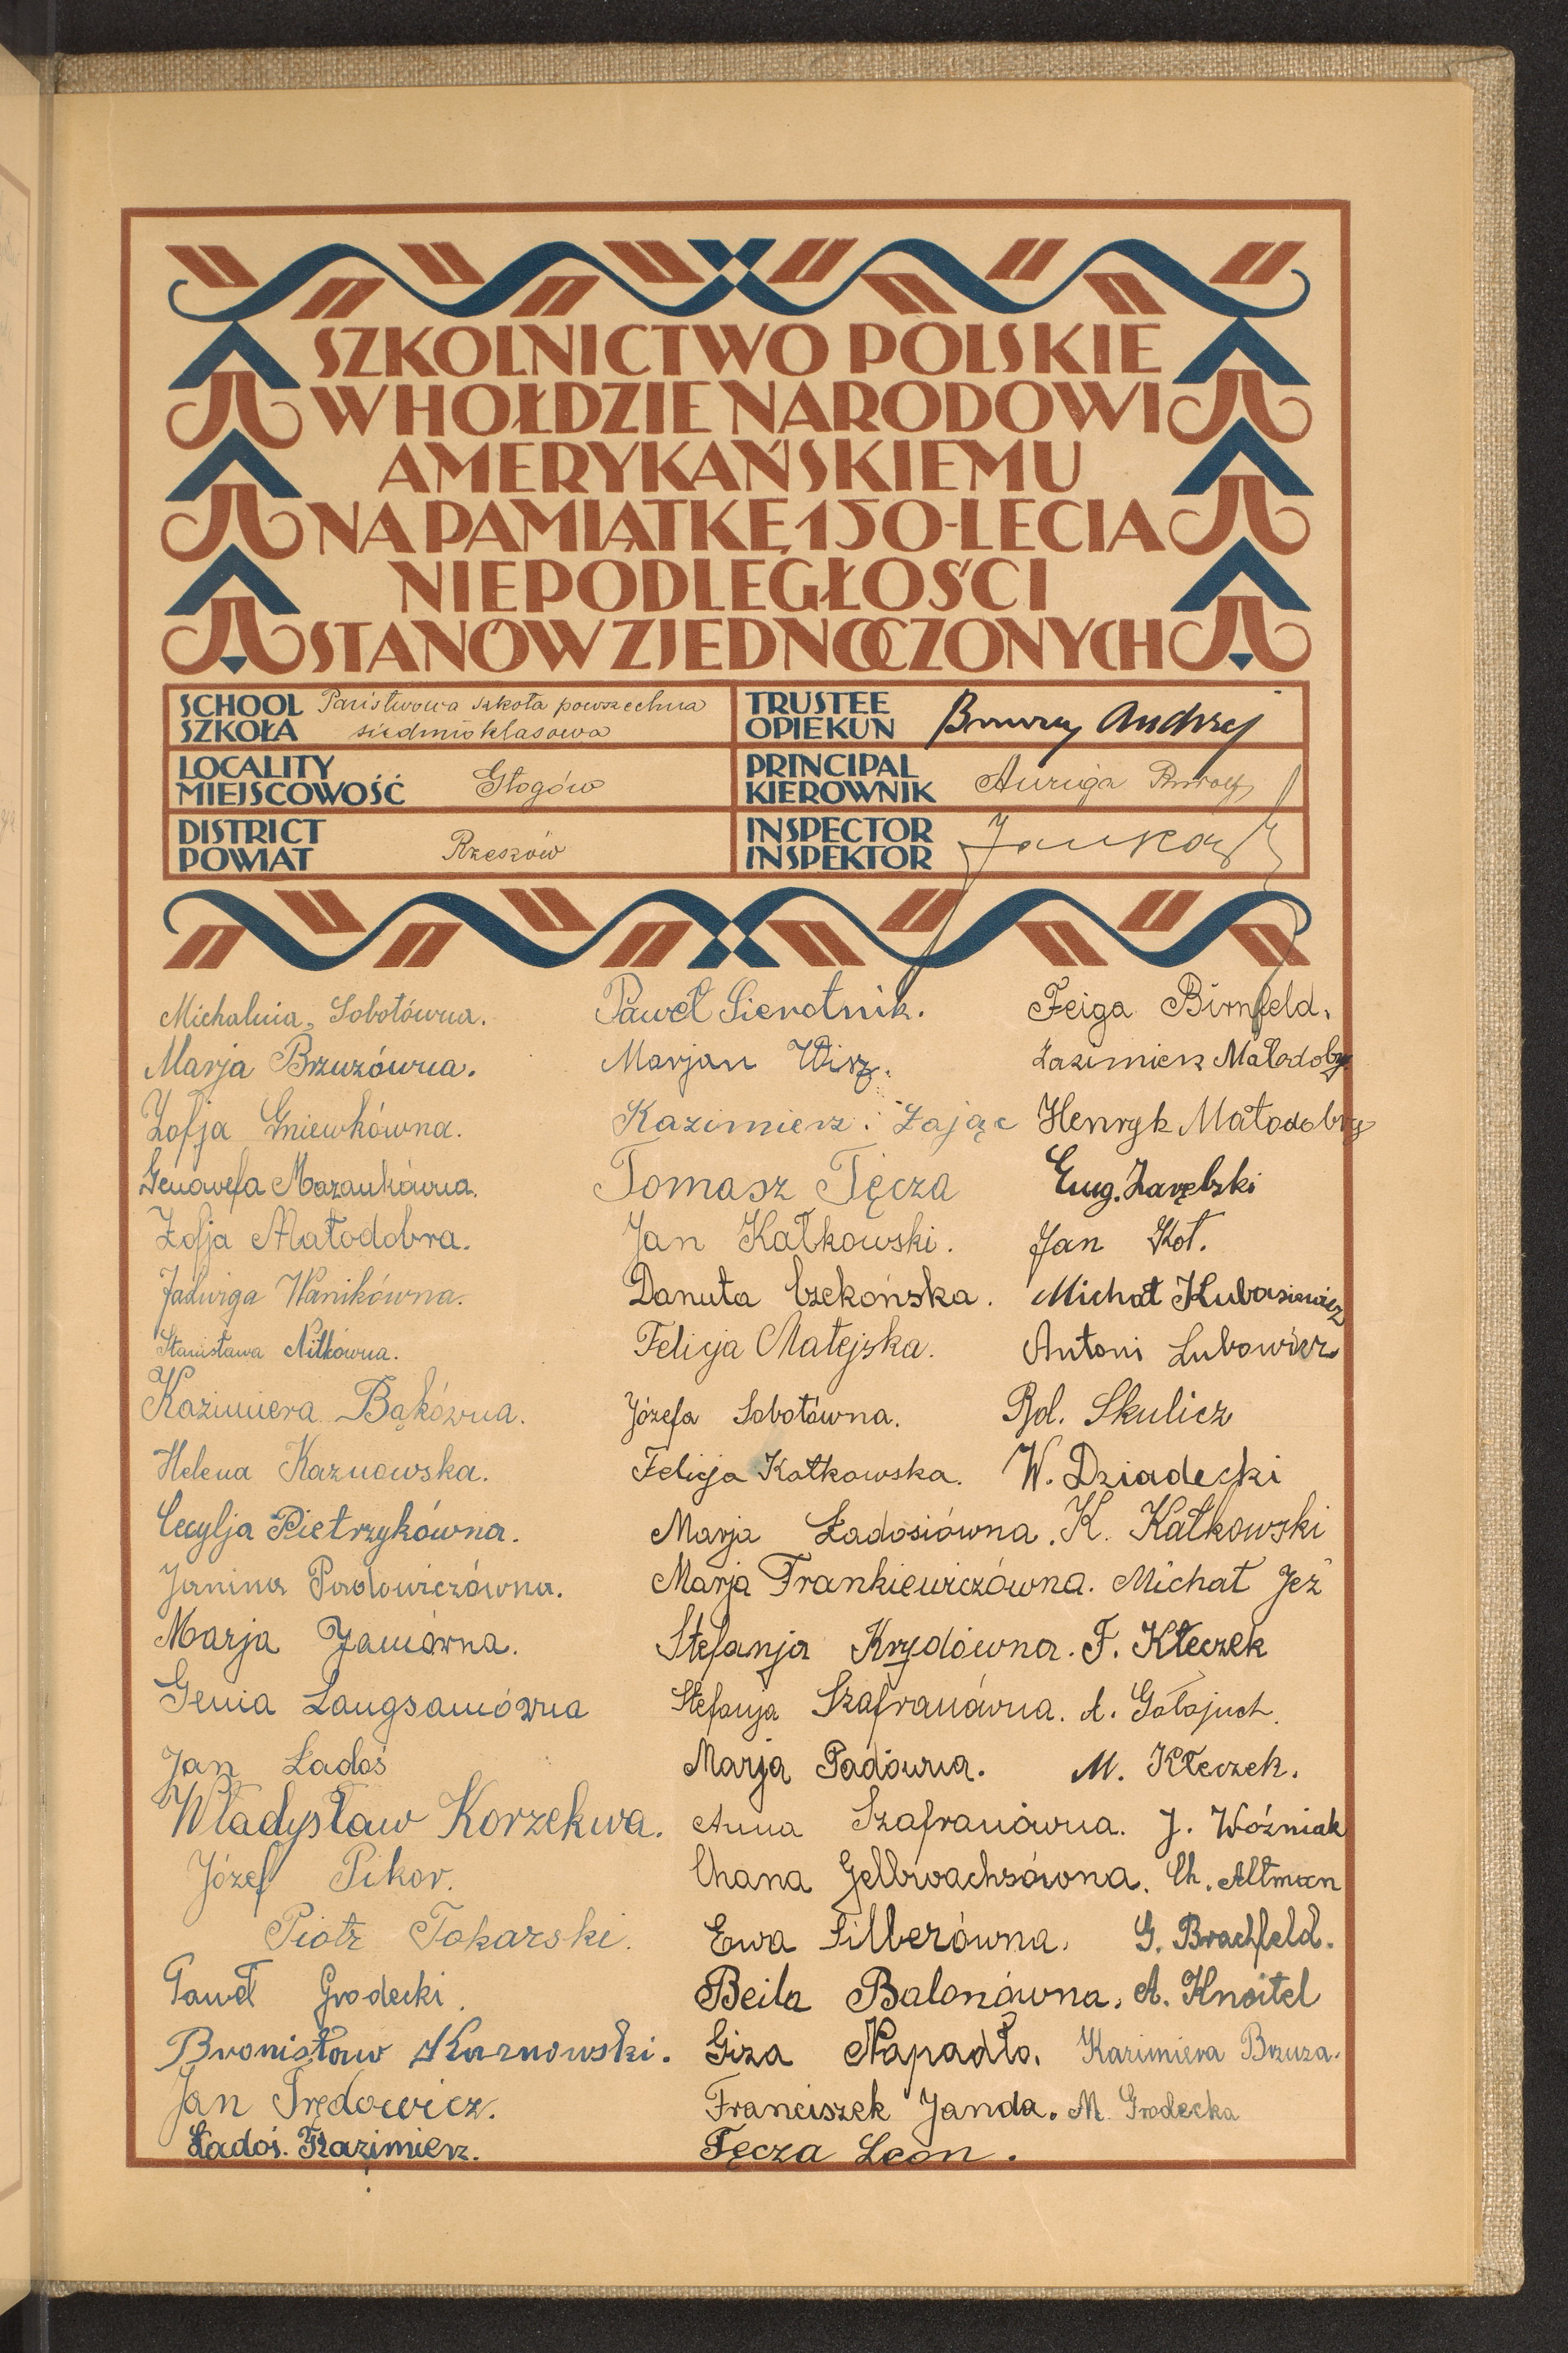 SZKOLNICTWO POLSKIE
W HOŁDZIE NARODOWI
AMERYKAŃSKIEMU
NA PAMIĄTKĘ 150-LECIA
NIEPODLEGŁOŚCI
STANÓW ZJEDNOCZONYCH
SCHOOL
SZKOŁA
Państwowa szkoła powszechna
siedmioklasowa
TRUSTEE
OPIEKUN
Andrzej
LOCALITY
MIEJSCOWOŚĆ
Głogów
PRINCIPAL
KIEROWNIK
Auriga
DISTRICT
POWIAT
Rzeszów
INSPECTOR
INSPEKTOR
Michalina Sobotówna.
Marja Brzuzówna.
Zofja Gniewkówna.
Genowefa Mazankówna.
Zofja Małodobra.
Jadwiga Wanikówna.
Stanisława Nitkówna.
Kazimiera Bąkówna.
Helena Kaznowska.
Cecylja Pietrzykówna.
Janina Padowiczówna.
Marja Jamówna.
Genia Langsamówna
Jan Ładoś
Władysław Korzekwa.
Józef Pikor.
Piotr Tokarski.
Paweł Grodecki.
Bronisław Kaznowski.
Jan Trędowicz.
Ładoś. Kazimierz.
Paweł Sierotnik.
Marjan Wisz.
Kazimierz. Zając
Tomasz Tęcza
Jan Kałkowski.
Danuta Czekońska.
Felicja Matejska.
Józefa Sobotówna.
Felicja Kałkowska.
Marja Ładosiówna.
Marja Frankiewiczówna.
Stefanja Krzydówna.
Stefanja Szafranówna.
Marja Padówna.
Anna Szafranówna.
Chana Gelbwachsówna.
Ewa Silberówna.
Beila Balonówna.
Giza Napadło.
Franciszek Janda.
Tęcza Leon.
Feiga Birnfeld.
Kazimierz Małodobry
Henryk Małodobry
Eug. Zarębski
Jan Kot.
Michał Kubasiewicz
Antoni Lubowicz
Bol. Skulicz
W. Dziadecki
K. Kałkowski
Michał Jeż
F. Kłeczek
A. Gołojuch.
M. Kłeczek.
J. Woźniak
Ch. Altman
G. Brachfeld.
A. Knoitel
Kazimiera Brzuza.
M. Grodecka